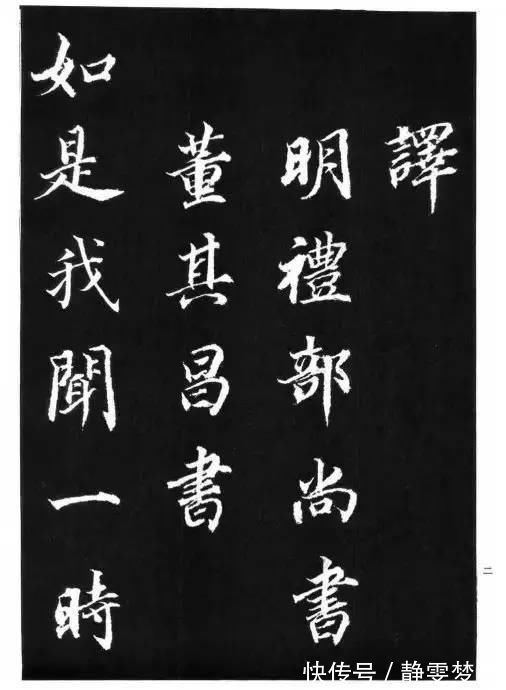 譯
明禮部尚書
董其昌書
如是我聞一時
二
快传号/静雯梦